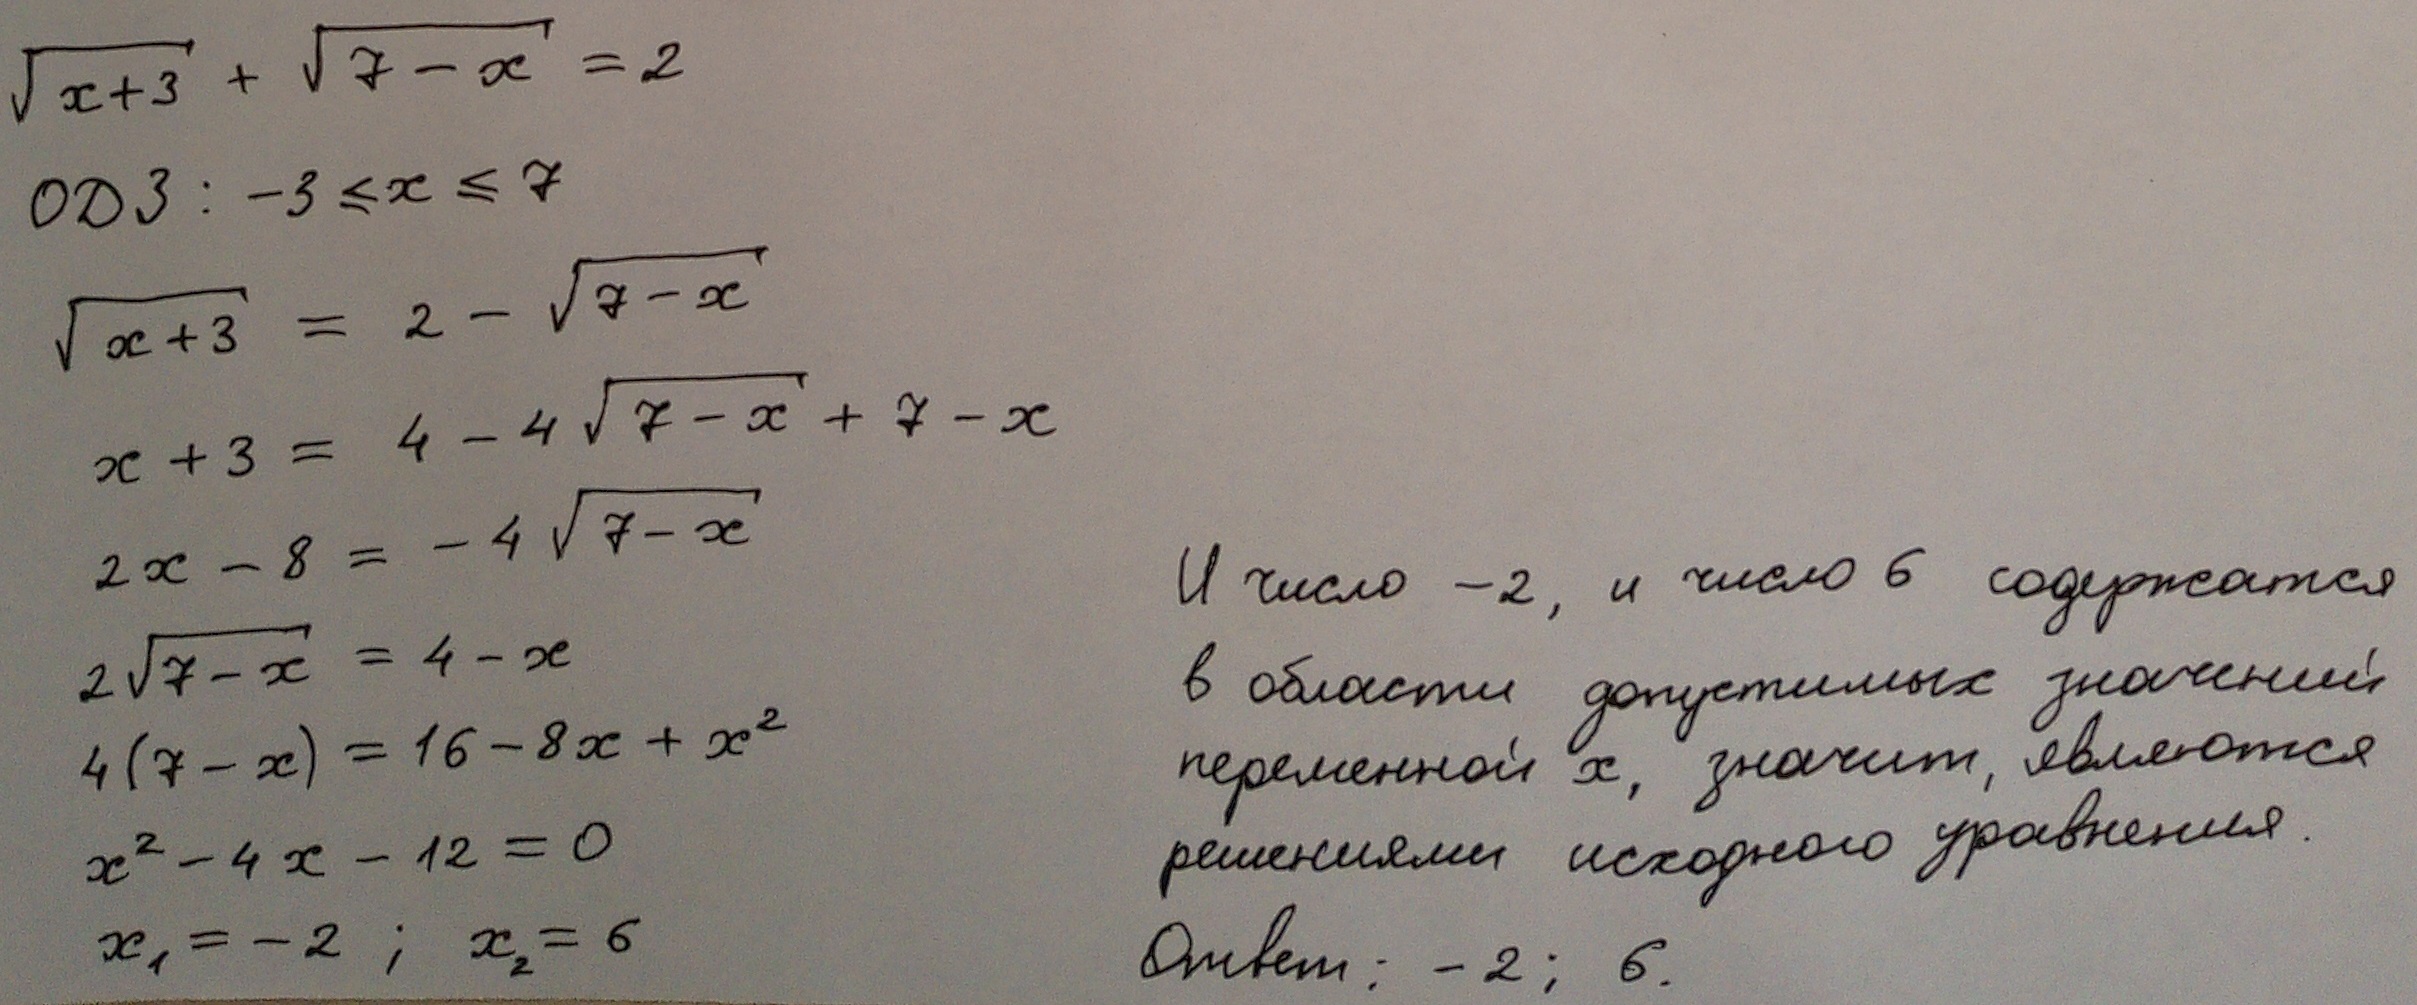 √(x+3) + √(7-x) = 2
ОДЗ: -3 ≤ x ≤ 7
√(x+3) = 2 - √(7-x)
x + 3 = 4 - 4√(7-x) + 7 - x
2x - 8 = -4√(7-x)
2√(7-x) = 4 - x
4(7-x) = 16 - 8x + x²
x² - 4x - 12 = 0
x₁ = -2 ; x₂ = 6
И число -2, и число 6 содержатся
в области допустимых значений
переменной x, значит, являются
решениями исходного уравнения.
Ответ: -2; 6.